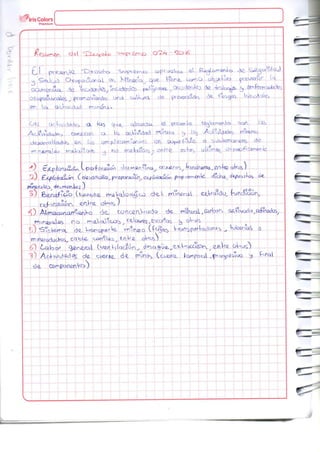 Iris Colors
Resumen del Decreto Supremo 024 - 2016
El presente Decreto Supremo aprueba el Reglamento de Seguridad
y Salud Ocupacional en Minería, que tiene como objetivo prevenir la
ocurrencia de incidentes, incidentes peligrosos, accidentes de trabajo y enfermedades
ocupacionales, promoviendo una cultura de prevención de riesgos laborales
en la actividad minera.
Las actividades a las que alcanza el presente reglamento son las
Actividades, conexas a la actividad minera y las Actividades mineras
desarrolladas en los emplazamientos en superficie o subterráneos de
minerales metálicos y no metálicos, entre estos,
1) Exploración (perforación diamantina, accesos, trincheras, entre otros)
2) Explotación (desarrollo, preparación, explotación propiamente dicha, depósitos de
minerales, desmontes)
3) Beneficio (tratamiento metalúrgico del mineral extraído, fundición,
refinación, entre otros)
4) Almacenamiento de concentrado de mineral, carbón activado, refinados,
minerales no metálicos, relaves, escorias y otros
5) Sistema de transporte minero (fajas transportadoras, tuberías o
mineroductos, cable carriles, entre otros)
6) Labor general (ventilación, drenaje, extracción, entre otros)
7) Actividades de cierre de minas (cierre temporal, progresivo y final
de componentes)